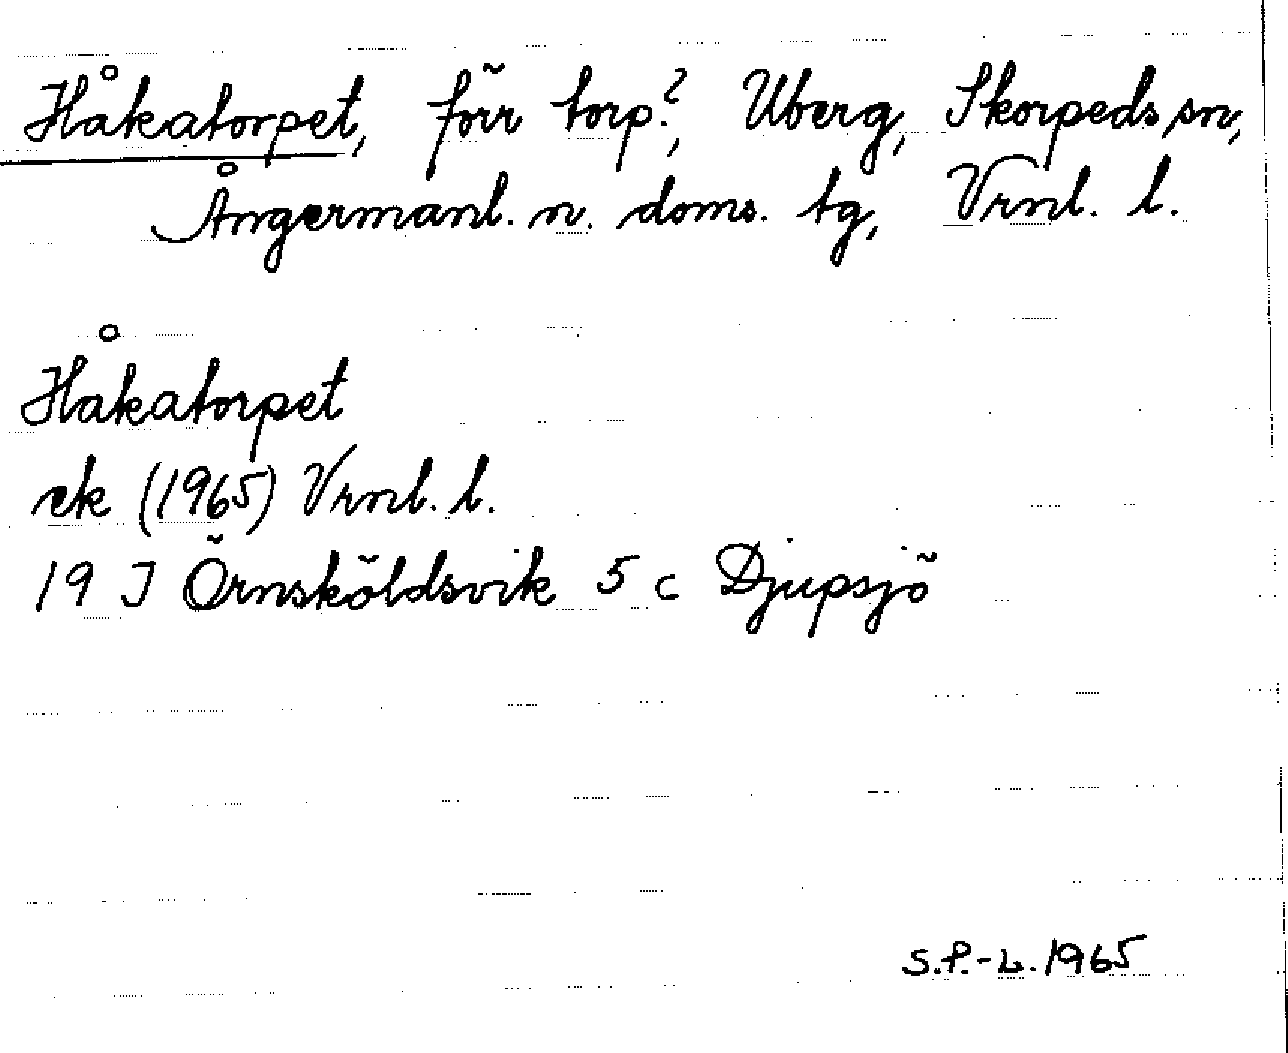 Håkatorpet, förr torp?, Uberg, Skorpeds sn,
Ångermanl. n. doms. tg, Vrnl. l.
Håkatorpet
ek (1965) Vrnl. l.
19 J Örnsköldsvik 5 c Djupsjö
S.P.-L. 1965